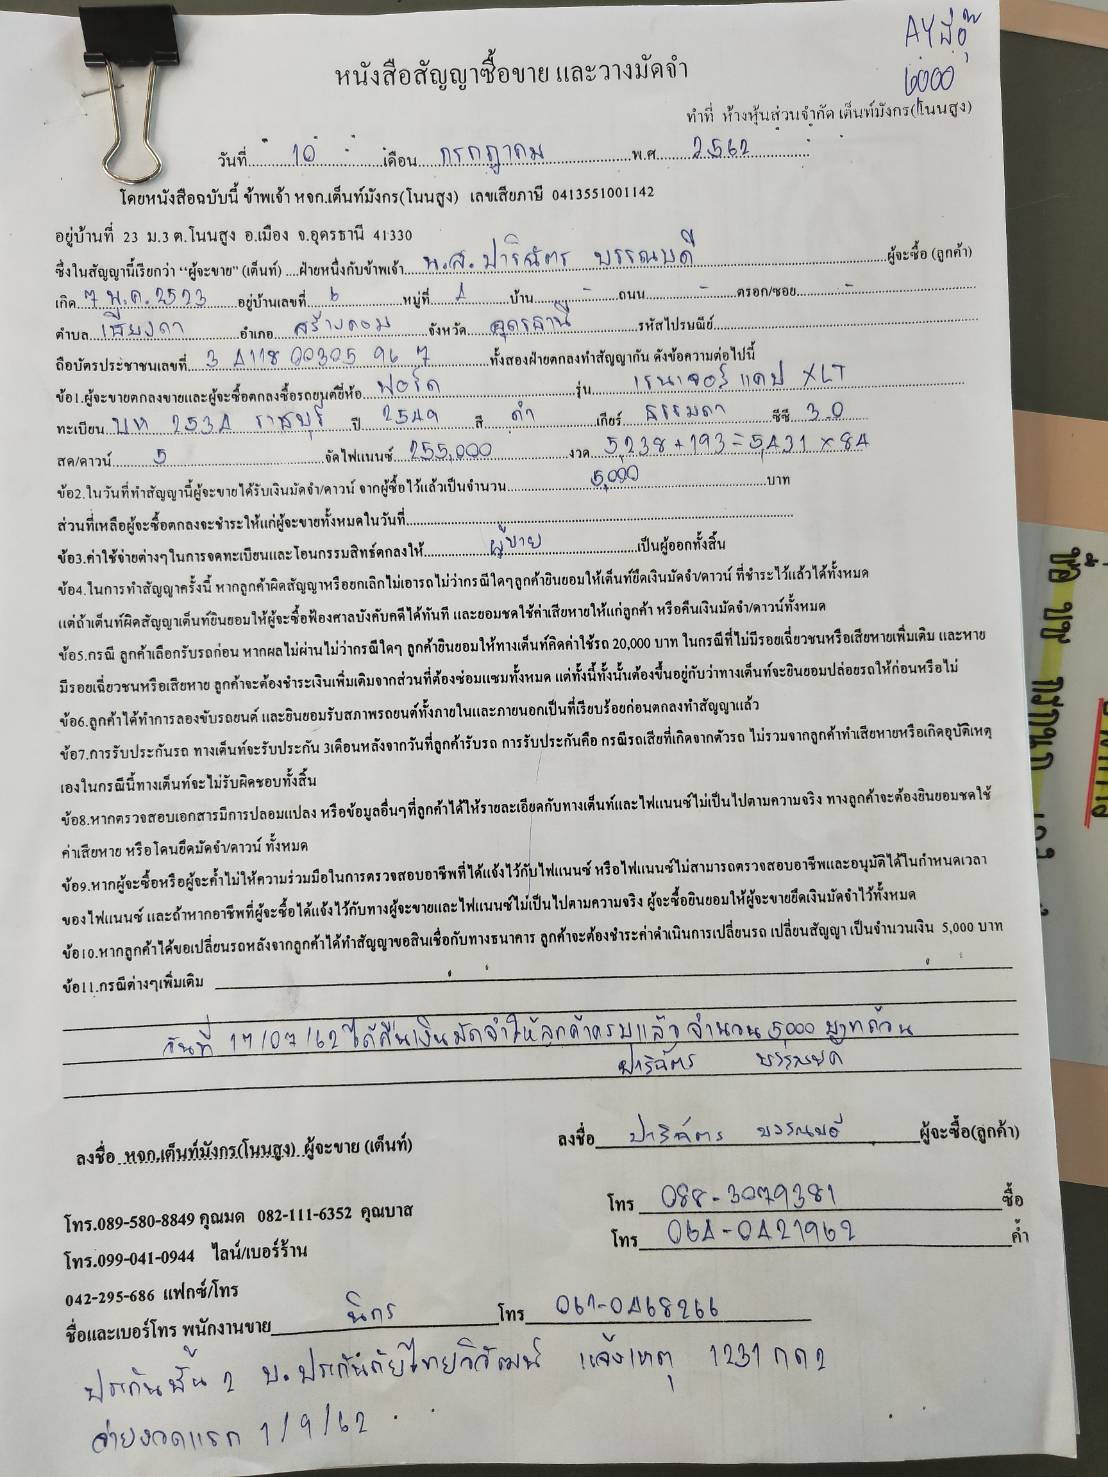 AY
6000
หนังสือสัญญาซื้อขาย และวางมัดจำ
ทำที่ ห้างหุ้นส่วนจำกัด เต็นท์มังกร(โนนสูง)
วันที่ 10 เดือน กรกฎาคม พ.ศ 2562
โดยหนังสือฉบับนี้ ข้าพเจ้า หจก.เต็นท์มังกร(โนนสูง) เลขเสียภาษี 0413551001142
อยู่บ้านที่ 23 ม.3 ต.โนนสูง อ.เมือง จ.อุดรธานี 41330
ซึ่งในสัญญานี้เรียกว่า "ผู้จะขาย" (เต็นท์) ....ฝ่ายหนึ่งกับข้าพเจ้า น.ส. ปาริฉัตร บรรณบดี ผู้จะซื้อ (ลูกค้า)
เกิด 7 พ.ค. 2523 อยู่บ้านเลขที่ 6 หมู่ที่ 4 บ้าน - ถนน - ตรอก/ซอย -
ตำบล เชียงดา อำเภอ สร้างคอม จังหวัด อุดรธานี รหัสไปรษณีย์
ถือบัตรประชาชนเลขที่ 3 4118 00305 96 7 ทั้งสองฝ่ายตกลงทำสัญญากัน ดังข้อความต่อไปนี้
ข้อ1.ผู้จะขายตกลงขายและผู้จะซื้อตกลงซื้อรถยนต์ยี่ห้อ ฟอร์ด รุ่น เรนเจอร์ แคป XLT
ทะเบียน บห 2534 ราชบุรี ปี 2549 สี ดำ เกียร์ ธรรมดา ซีซี 3.0
สด/ดาวน์ 5 จัดไฟแนนซ์ 255,000 งวด 5,238+193=5,431 x 84
ข้อ2.ในวันที่ทำสัญญานี้ผู้จะขายได้รับเงินมัดจำ/ดาวน์ จากผู้ซื้อไว้แล้วเป็นจำนวน 5,000 บาท
ส่วนที่เหลือผู้จะซื้อตกลงจะชำระให้แก่ผู้จะขายทั้งหมดในวันที่
ข้อ3.ค่าใช้จ่ายต่างๆในการจดทะเบียนและโอนกรรมสิทธ์ตกลงให้ ผู้ขาย เป็นผู้ออกทั้งสิ้น
ข้อ4.ในการทำสัญญาครั้งนี้ หากลูกค้าผิดสัญญาหรือยกเลิกไม่เอารถไม่ว่ากรณีใดๆลูกค้ายินยอมให้เต็นท์ยึดเงินมัดจำ/ดาวน์ ที่ชำระไว้แล้วได้ทั้งหมด
แต่ถ้าเต็นท์ผิดสัญญาเต็นท์ยินยอมให้ผู้จะซื้อฟ้องศาลบังคับคดีได้ทันที และยอมชดใช้ค่าเสียหายให้แก่ลูกค้า หรือคืนเงินมัดจำ/ดาวน์ทั้งหมด
ข้อ5.กรณี ลูกค้าเลือกรับรถก่อน หากผลไม่ผ่านไม่ว่ากรณีใดๆ ลูกค้ายินยอมให้ทางเต็นท์คิดค่าใช้รถ 20,000 บาท ในกรณีที่ไม่มีรอยเฉี่ยวชนหรือเสียหายเพิ่มเติม และหาย
มีรอยเฉี่ยวชนหรือเสียหาย ลูกค้าจะต้องชำระเงินเพิ่มเติมจากส่วนที่ต้องซ่อมแซมทั้งหมด แต่ทั้งนี้ทั้งนั้นต้องขึ้นอยู่กับว่าทางเต็นท์จะยินยอมปล่อยรถให้ก่อนหรือไม่
ข้อ6.ลูกค้าได้ทำการลองขับรถยนต์ และยินยอมรับสภาพรถยนต์ทั้งภายในและภายนอกเป็นที่เรียบร้อยก่อนตกลงทำสัญญาแล้ว
ข้อ7.การรับประกันรถ ทางเต็นท์จะรับประกัน 3เดือนหลังจากวันที่ลูกค้ารับรถ การรับประกันคือ กรณีรถเสียที่เกิดจากตัวรถ ไม่รวมจากลูกค้าทำเสียหายหรือเกิดอุบัติเหตุ
เองในกรณีนี้ทางเต็นท์จะไม่รับผิดชอบทั้งสิ้น
ข้อ8.หากตรวจสอบเอกสารมีการปลอมแปลง หรือข้อมูลอื่นๆที่ลูกค้าได้ให้รายละเอียดกับทางเต็นท์และไฟแนนซ์ไม่เป็นไปตามความจริง ทางลูกค้าจะต้องยินยอมชดใช้
ค่าเสียหาย หรือโดนยึดมัดจำ/ดาวน์ ทั้งหมด
ข้อ9.หากผู้จะซื้อหรือผู้จะค้ำไม่ให้ความร่วมมือในการตรวจสอบอาชีพที่ได้แจ้งไว้กับไฟแนนซ์ หรือไฟแนนซ์ไม่สามารถตรวจสอบอาชีพและอนุมัติได้ในกำหนดเวลา
ของไฟแนนซ์ และถ้าหากอาชีพที่ผู้จะซื้อได้แจ้งไว้กับทางผู้จะขายและไฟแนนซ์ไม่เป็นไปตามความจริง ผู้จะซื้อยินยอมให้ผู้จะขายยึดเงินมัดจำไว้ทั้งหมด
ข้อ10.หากลูกค้าได้ขอเปลี่ยนรถหลังจากลูกค้าได้ทำสัญญาขอสินเชื่อกับทางธนาคาร ลูกค้าจะต้องชำระค่าดำเนินการเปลี่ยนรถ เปลี่ยนสัญญา เป็นจำนวนเงิน 5,000 บาท
ข้อ11.กรณีต่างๆเพิ่มเติม
วันที่ 17/07/62 ได้คืนเงินมัดจำให้ลูกค้าครบแล้ว จำนวน 5000 บาทถ้วน
ปาริฉัตร บรรณบดี
ลงชื่อ หจก.เต็นท์มังกร(โนนสูง) ผู้จะขาย (เต็นท์)
ลงชื่อ ปาริฉัตร บรรณบดี ผู้จะซื้อ(ลูกค้า)
โทร 088-3079381 ซื้อ
โทร.089-580-8849 คุณมด 082-111-6352 คุณบาส
โทร 064-0421962 ค้ำ
โทร.099-041-0944 ไลน์/เบอร์ร้าน
042-295-686 แฟกซ์/โทร
ชื่อและเบอร์โทร พนักงานขาย นิกร โทร 061-0468266
ประกันชั้น 2 บ. ประกันภัยไทยวิวัฒน์ แจ้งเหตุ 1231 กด 2
จ่ายงวดแรก 1/9/62